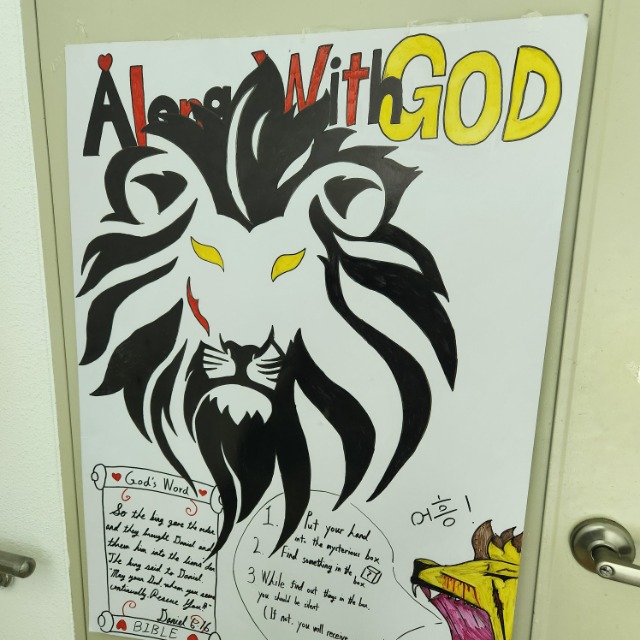 Along With GOD
God's Word
So the king gave the order
and they brought Daniel and
threw him into the lions den
The king said to Daniel.
"May your God whom you serve
continually Rescue You!"
Daniel 6:16
BIBLE
1. Put your hand
into the mysterious box.
2. Find something in the box
3 While find out thing in the box.
you should be silent
(If not, you will receive
어흥!